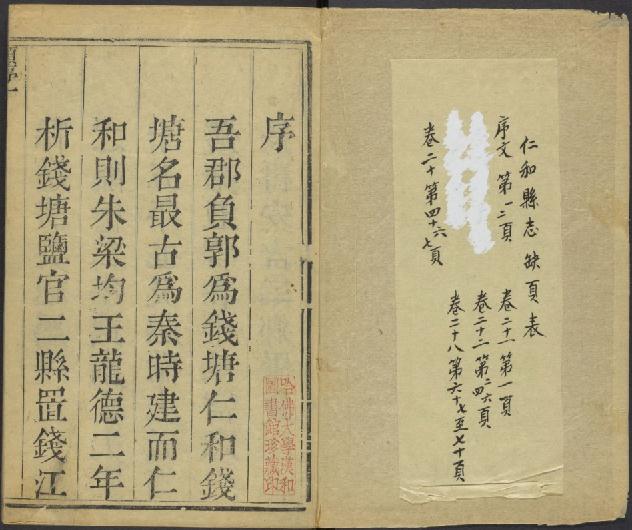 仁和縣志缺頁表
序文第一二頁
卷二十第四十六七頁
卷二十一第一頁
卷二十二第四六頁
卷二十八第六十七至七十頁
序
吾郡負郭爲錢塘仁和錢
塘名最古爲秦時建而仁
和則朱梁均王龍德二年
析錢塘鹽官二縣置錢江
哈佛大學漢和
圖書館珍藏印